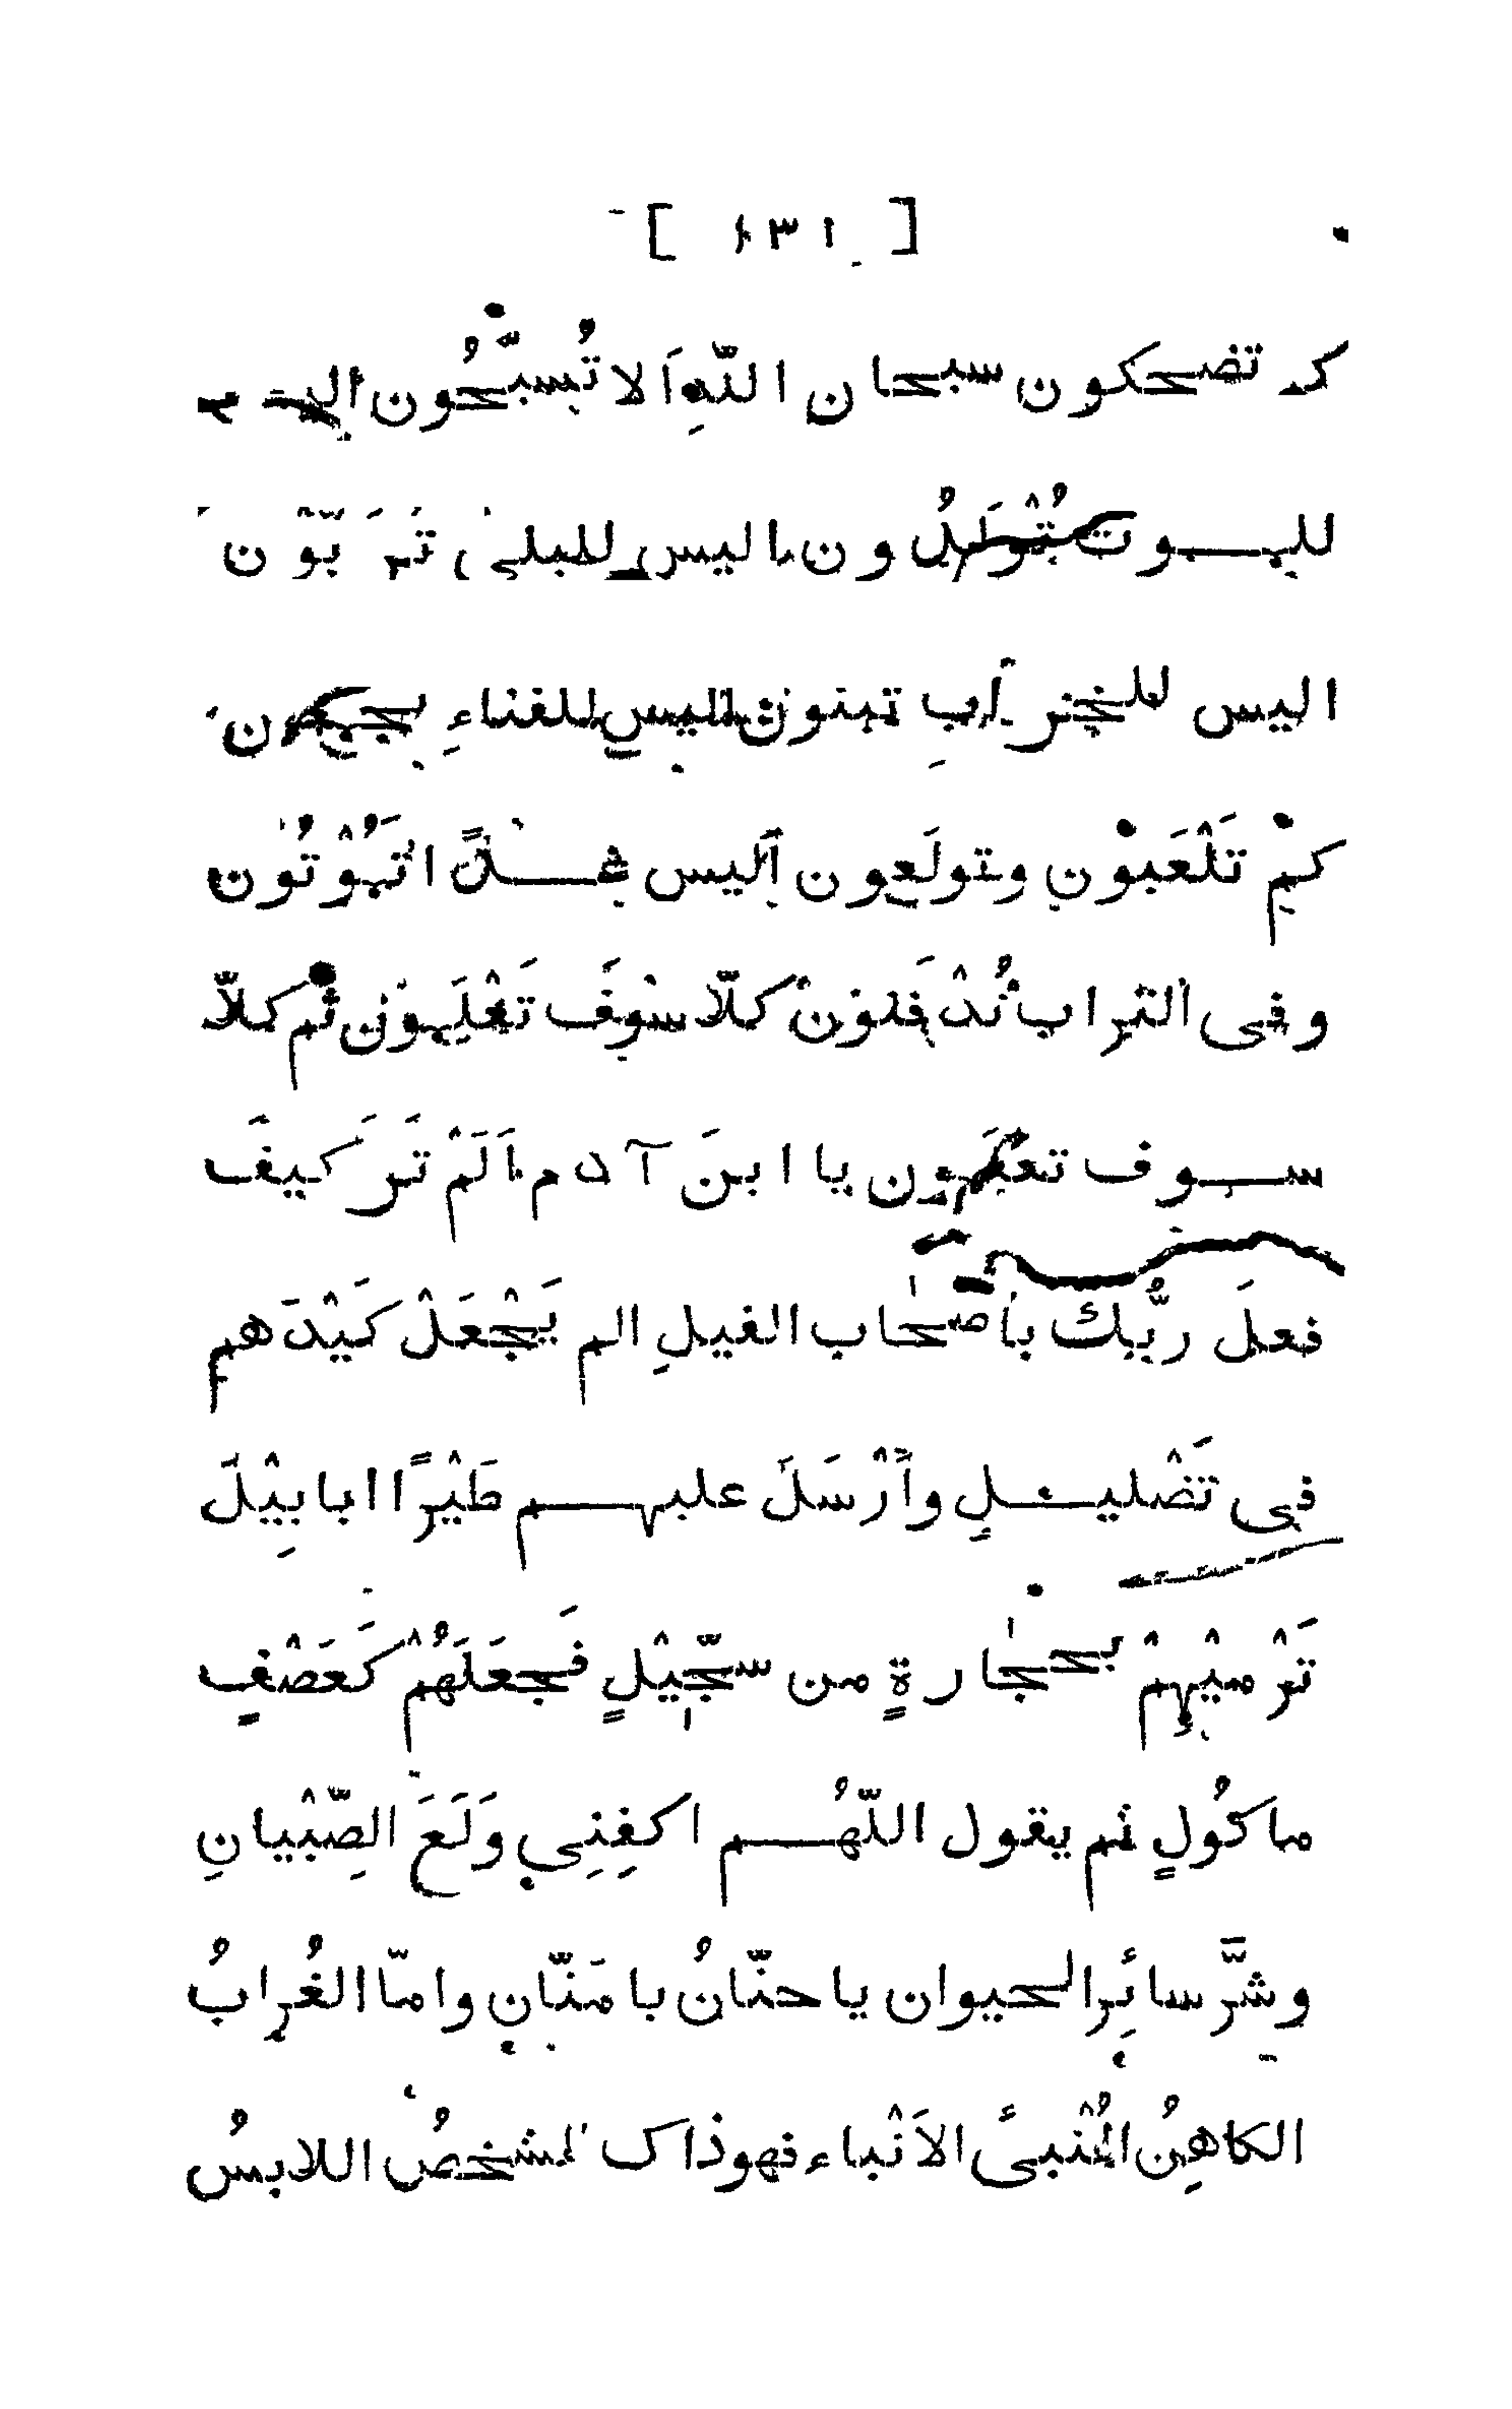 [ ١٣١ ]
تضحكون سبحان اللّهِ اَلا تُسبّحُون اليس
للموت تُوْلَدُون اليس للبلى تُرَبَّوْن
اليس للخرابِ تبنون اليس للفناءِ تجمعون
كمْ تَلْعَبوْن وتولَعون اَليس غدًا تَمُوْتُون
وفى التراب تُدْفَنوْنَ كلّا سوْفَ تَعْلَموْن ثم كلّا
سوف تعْلَمون يا ابنَ آدم اَلَمْ تَرَ كيفَ
فعلَ ربُّك باَصحاب الفيلِ الم يَجْعَلْ كَيْدَهم
فى تَضْليلٍ واَرْسَلَ عليهم طَيْرًا ابابِيْلَ
تَرْمِيْهِمْ بحجارةٍ من سجّيْلٍ فَجعَلَهُمْ كَعَصْفٍ
ماكُولٍ ثم يقول اللّهُم اكفِنِي وَلَعَ الصِّبْيانِ
وشَّر سائِر الحيوان يا حنّانُ يا مَنّان وامّا الغُرابُ
الكاهِنُ المُنْبئُ الاَنْباء فهو ذاك المشخصُ اللابسُ